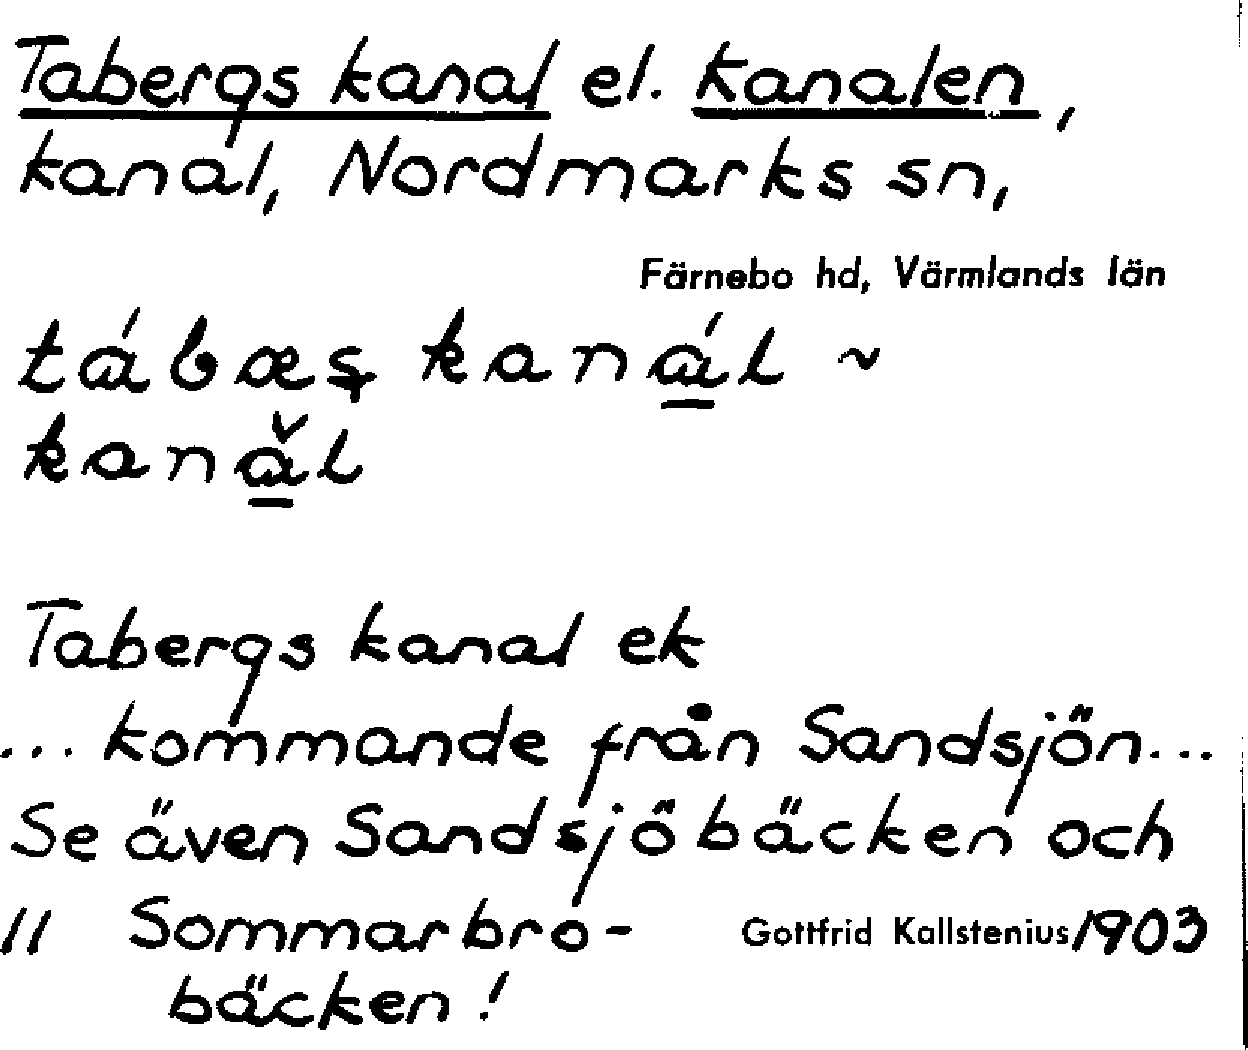 Tabergs kanal el. kanalen,
kanal, Nordmarks sn,
Färnebo hd, Värmlands län
tábæş kaná̱l ~
kanǎ̱l
Tabergs kanal ek
... kommande från Sandsjön...
Se även Sandsjöbäcken och
" Sommarbro-
bäcken!
Gottfrid Kallstenius/1903